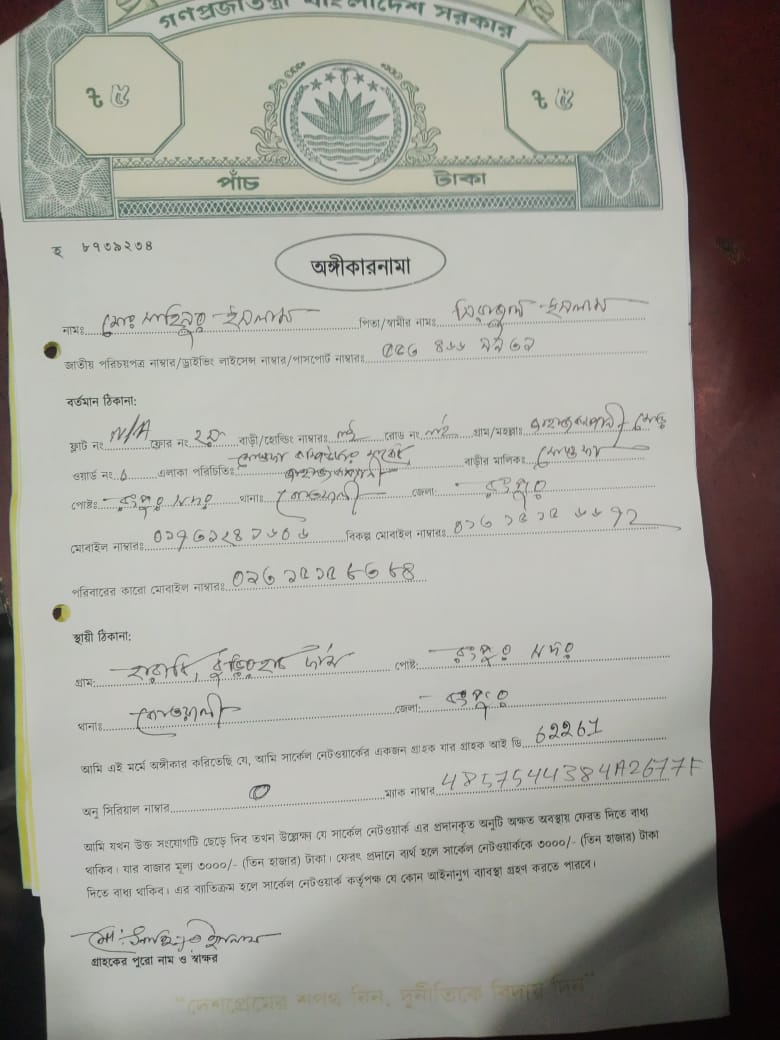 গণপ্রজাতন্ত্রী বাংলাদেশ সরকার
৳ ৫ ৳ ৫
পাঁচ টাকা
হ ৮৭৩৯২৩৪
অঙ্গীকারনামা
নামঃ মোঃ সাহিনুর ইসলাম পিতা/স্বামীর নামঃ সিরাজুল ইসলাম
জাতীয় পরিচয়পত্র নাম্বার/ড্রাইভিং লাইসেন্স নাম্বার/পাসপোর্ট নাম্বারঃ
বর্তমান ঠিকানা:
ফ্লাট নং N/A ফ্লোর নং ২য় বাড়ী/হোল্ডিং নাম্বারঃ নাই রোড নং নাই গ্রাম/মহল্লাঃ
ওয়ার্ড নং এলাকা পরিচিতিঃ বাড়ীর মালিকঃ
পোষ্টঃ রংপুর সদর থানাঃ কোতয়ালী জেলাঃ রংপুর
মোবাইল নাম্বারঃ বিকল্প মোবাইল নাম্বারঃ
পরিবারের কারো মোবাইল নাম্বারঃ
স্থায়ী ঠিকানা:
গ্রাম: পোষ্ট: রংপুর সদর
থানাঃ কোতয়ালী জেলা: রংপুর
আমি এই মর্মে অঙ্গীকার করিতেছি যে, আমি সার্কেল নেটওয়ার্কের একজন গ্রাহক যার গ্রাহক আই ডি 62261
অনু সিরিয়াল নাম্বার 0 ম্যাক নাম্বার 4857544384A2677F
আমি যখন উক্ত সংযোগটি ছেড়ে দিব তখন উল্লেক্ষ্য যে সার্কেল নেটওয়ার্ক এর প্রদানকৃত অনুটি অক্ষত অবস্থায় ফেরত দিতে বাধ্য
থাকিব। যার বাজার মূল্য ৩০০০/- (তিন হাজার) টাকা। ফেরৎ প্রদানে ব্যর্থ হলে সার্কেল নেটওয়ার্ককে ৩০০০/- (তিন হাজার) টাকা
দিতে বাধ্য থাকিব। এর ব্যতিক্রম হলে সার্কেল নেটওয়ার্ক কর্তৃপক্ষ যে কোন আইনানুগ ব্যবস্থা গ্রহণ করতে পারবে।
মো: সাহিনুর ইসলাম
গ্রাহকের পুরো নাম ও স্বাক্ষর
"দেশপ্রেমের শপথ নিন, দুর্নীতিকে বিদায় দিন"